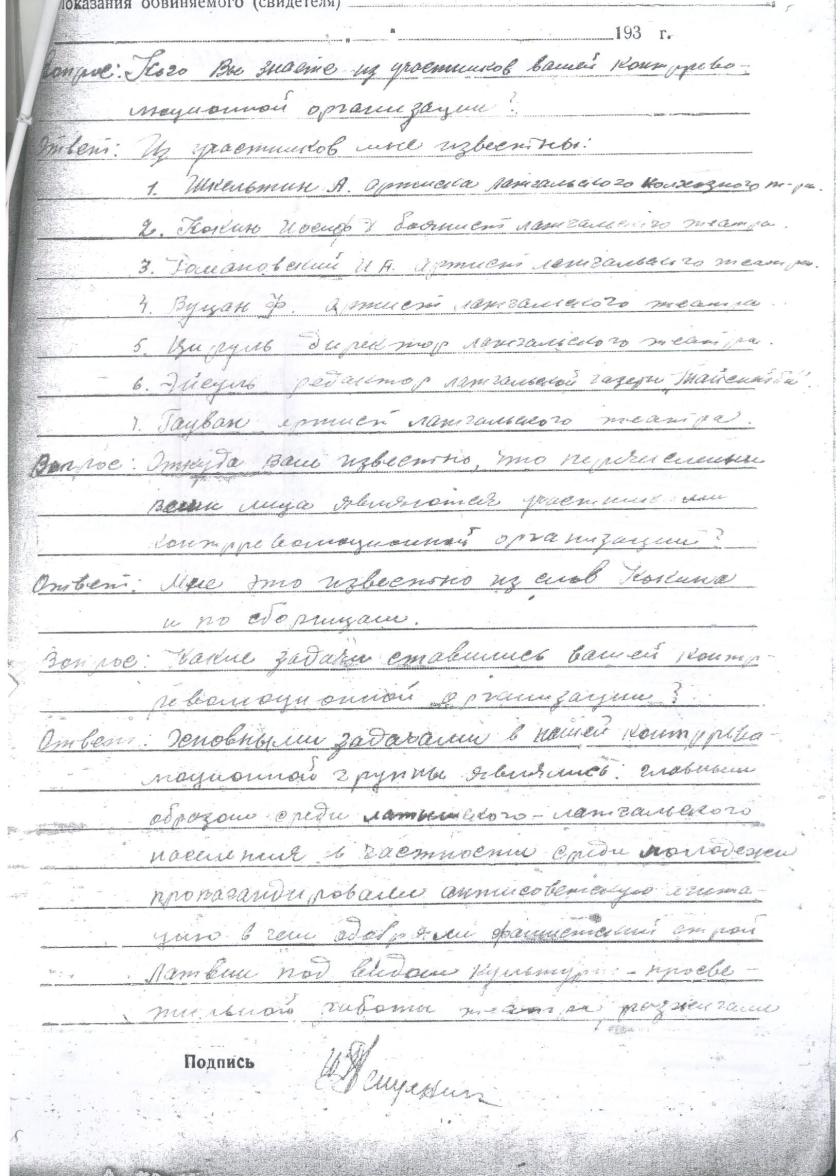 показания обвиняемого (свидетеля)
193 г.
Вопрос: Кого Вы знаете из участников вашей контррево-
люционной организации?
Ответ: Из участников мне известны:
1. Шкельтин А. артистка латгальского колхозного т-ра.
2. Кокин Иосиф И баянист латгальского театра.
3. Романовский И А. артист латгальского театра.
4. Вуцан Ф. артист латгальского театра.
5. Цируль директор латгальского театра.
6. Эйсуль редактор латгальской газеты
7. Гауван артист латгальского театра.
Вопрос: Откуда Вам известно, что перечисленные
вами лица являются участниками
контрреволюционной организации?
Ответ: Мне это известно из слов Кокина
и по сборищам.
Вопрос: Какие задачи ставились вашей контр-
революционной организации?
Ответ: Основными задачами в нашей контррево-
люционной группы являлись: главным
образом среди латышского-латгальского
населения в частности среди молодежи
пропагандировали антисоветскую агита-
цию в чем одобряли фашистский строй
Латвии под видом культурно-просве-
тильной работы театра, разжигали
Подпись